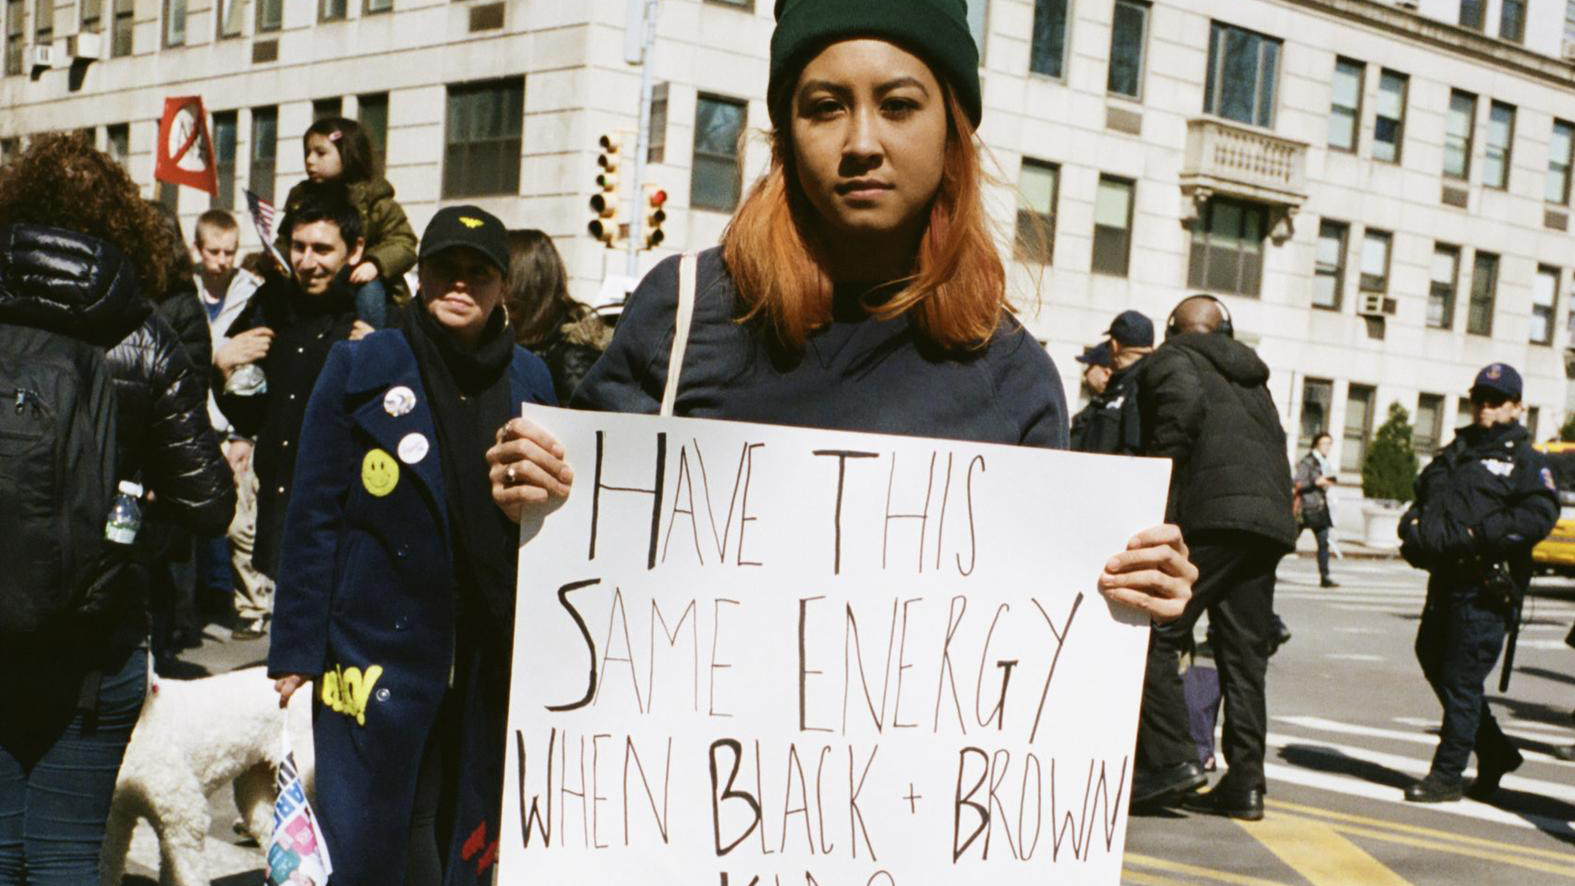 HAVE THIS
SAME ENERGY
WHEN BLACK + BROWN